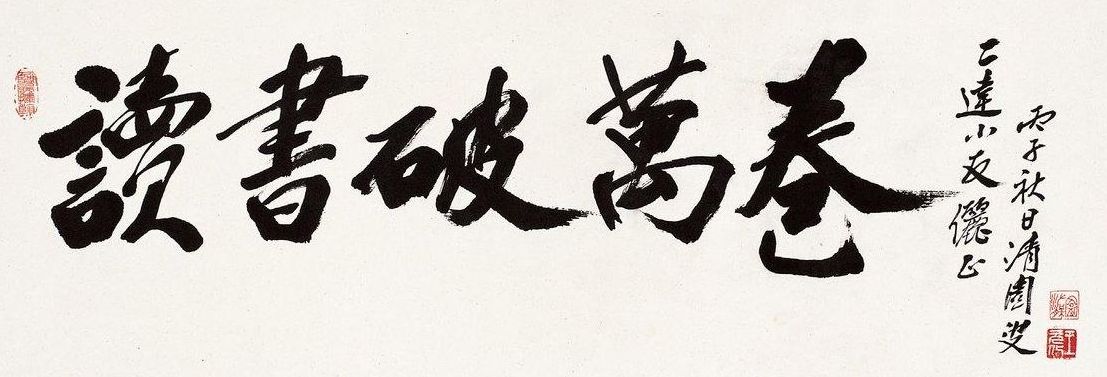 讀書破萬卷
達小友儷正
丙子秋日清園叟